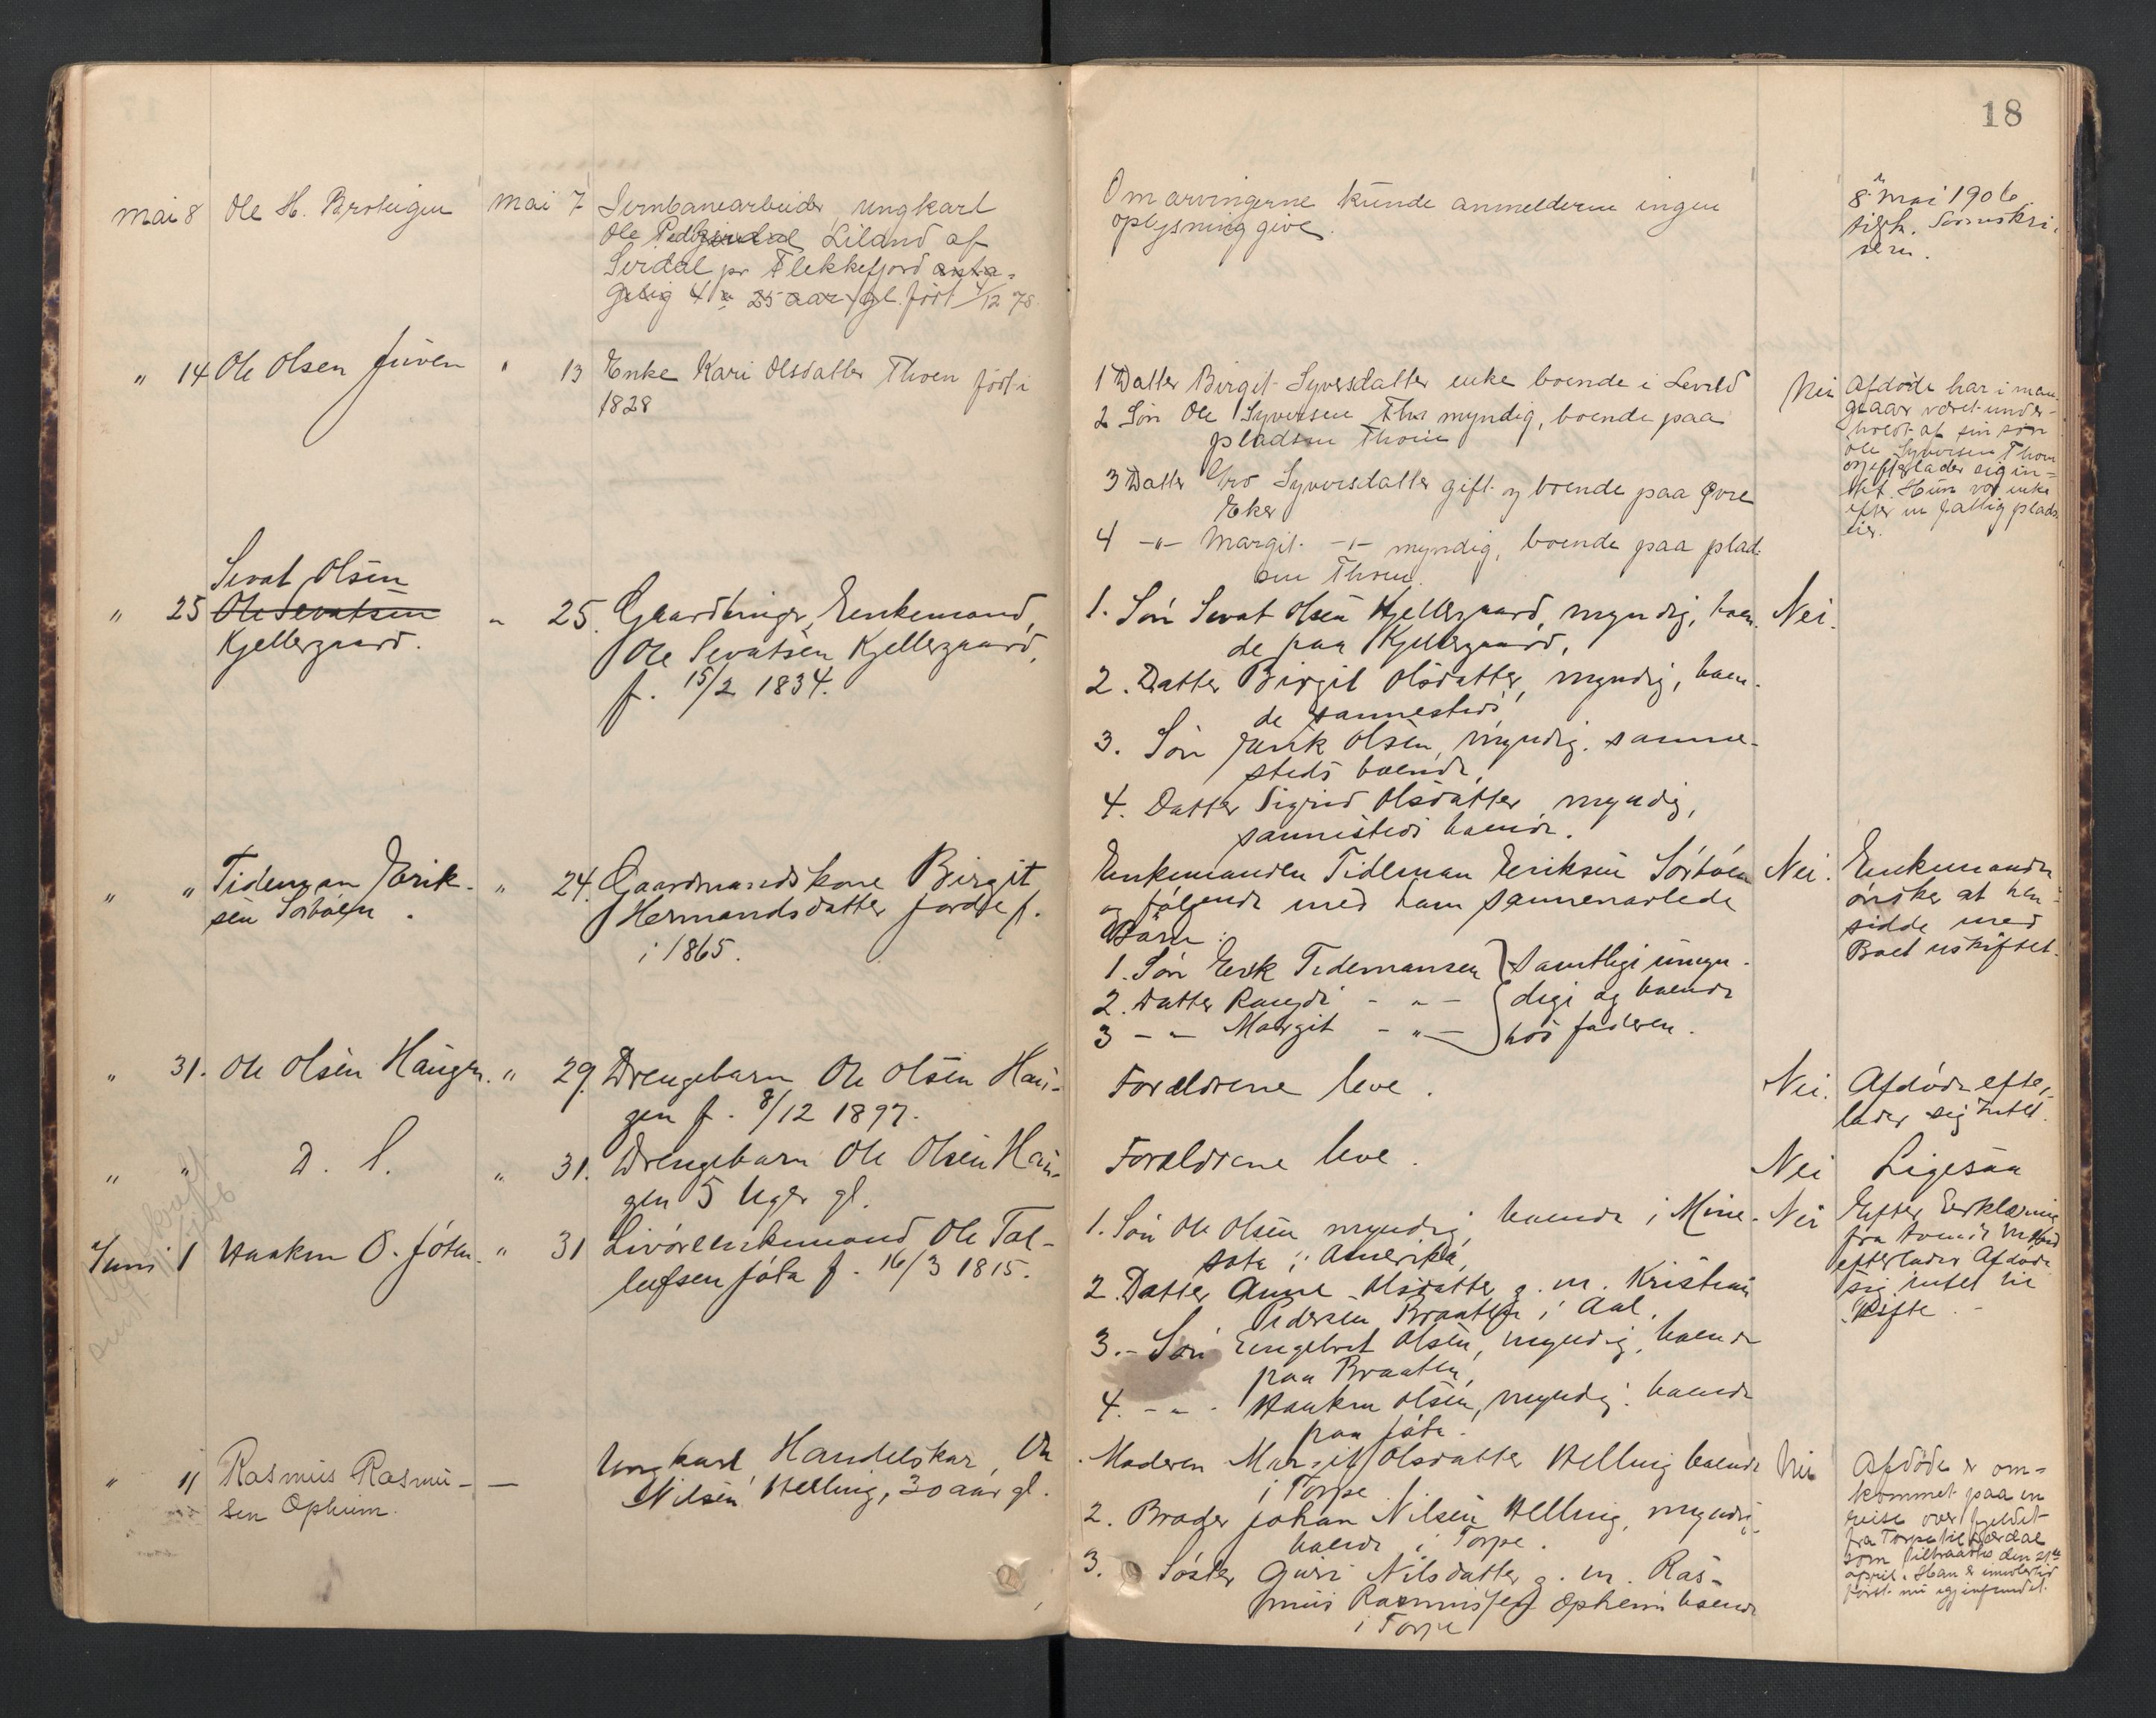 18
mai 8 Ole H. Broteigen mai 7 Jernbanearbeider, ungkarl
Ole Liland af
Sirdal pr Flekkefjord anta-
gelig 4 25 aar gl. født 4/12 78
Om arvingerne kunde anmelderen ingen
oplysning give.
8 mai 1906
" 14 Ole Olsen Juven " 13 Enke Kari Olsdatter Thoen født i
1828
1 Datter Birgit Syversdatter enke boende i Leveld
2 Søn Ole Syversen Tho myndig, boende paa
pladsen Thoen
3 Datter Gro Syversdatter gift og boende paa Øvre
Eker
4 -"- Margit -"- myndig, boende paa plad-
sen Thoen.
Nei
Afdøde har i man-
ge aar været under-
holdt af sin søn
Ole Syversen Thoen
og efterlader sig in-
tet. Hun var enke
efter en fattig plads-
eier.
" 25 Sevat Olsen
Ole Sevatsen
Kjellergaard.
" 25. Gaardbruger, Enkemand,
Ole Sevatsen Kjellergaard,
f. 15/2 1834.
1. Søn Sevat Olsen Kjellergaard, myndig, boen-
de paa Kjellergaard,
2. Datter Birgit Olsdatter, myndig, boen-
de sammesteds,
3. Søn Erik Olsen, myndig. samme-
steds boende,
4. Datter Sigrid Olsdatter, myndig,
sammesteds boende.
Nei.
" " Tideman Erik-
sen Sørbøen.
" 24. Gaardmandskone Birgit
Hermandsdatter f.
i 1865.
Enkemanden Tideman Eriksen Sørbøen
og følgende med ham sammenavlede
Børn:
1. Søn Erik Tidemansen } Samtlige umyn-
2. Datter Rangdi - " - } dige og boende
3 - " - Margit - " - } hos faderen.
Nei.
Enkemanden
ønsker at hen-
sidde med
Boet uskiftet.
" 31. Ole Olsen Haugen. " 29. Drengebarn Ole Olsen Hau-
gen f. 8/12 1897.
Forældrene leve.
Nei.
Afdøde efter-
lader sig Intet.
" " D. S. " 31. Drengebarn Ole Olsen Hau-
gen 5 Uger gl.
Forældrene leve.
Nei
Ligesaa
Juni 1 Haakon O. Jøten. " 31 Livøreenkemand Ole Tol-
lefsen Jøta f. 16/3 1815.
1. Søn Ole Olsen myndig, boende i Mine-
sota i Amerika,
2. Datter Anne Olsdatter g. m. Kristian
Pedersen Braaten i Aal.
3. - Søn Engebret Olsen, myndig, boende
paa Braaten,
4. - " - Haakon Olsen, myndig. boende
paa Jøta.
Nei
Efter Erklæring
fra
efterlader Afdøde
sig intet til
Skifte.
" 11 Rasmus Rasmu-
sen Opheim.
— Ungkarl Handelskar, Ole
Nilsen Helling, 30 aar gl.
Moderen Margit Olsdatter Helling boende
i Torpe
2. Broder Johan Nilsen Helling, myndig,
boende i Torpe.
3. Søster Guri Nilsdatter g. m. Ras-
mus Rasmussen Opheim boende
i Torpe
Nei
Afdøde er om-
kommet paa en
reise over fjeldet
fra Torpe til Lærdal
som tiltraadtes den 21de
april. Han er imidlertid
først nu igjenfundet.